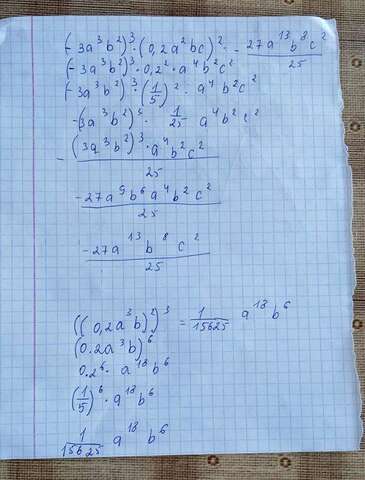 (-3a³b²)³·(0,2a²bc)²=-27a¹³b⁸c²/25
(-3a³b²)³·0,2²·a⁴b²c²
(-3a³b²)³·(1/5)²·a⁴b²c²
-(3a³b²)³· 1/25 a⁴b²c²
-(3a³b²)³·a⁴b²c²/25
-27a⁹b⁶a⁴b²c²/25
-27a¹³b⁸c²/25
((0,2a³b)²)³ = 1/15625 a¹⁸b⁶
(0.2a³b)⁶
0.2⁶·a¹⁸b⁶
(1/5)⁶·a¹⁸b⁶
1/15625 a¹⁸ b⁶